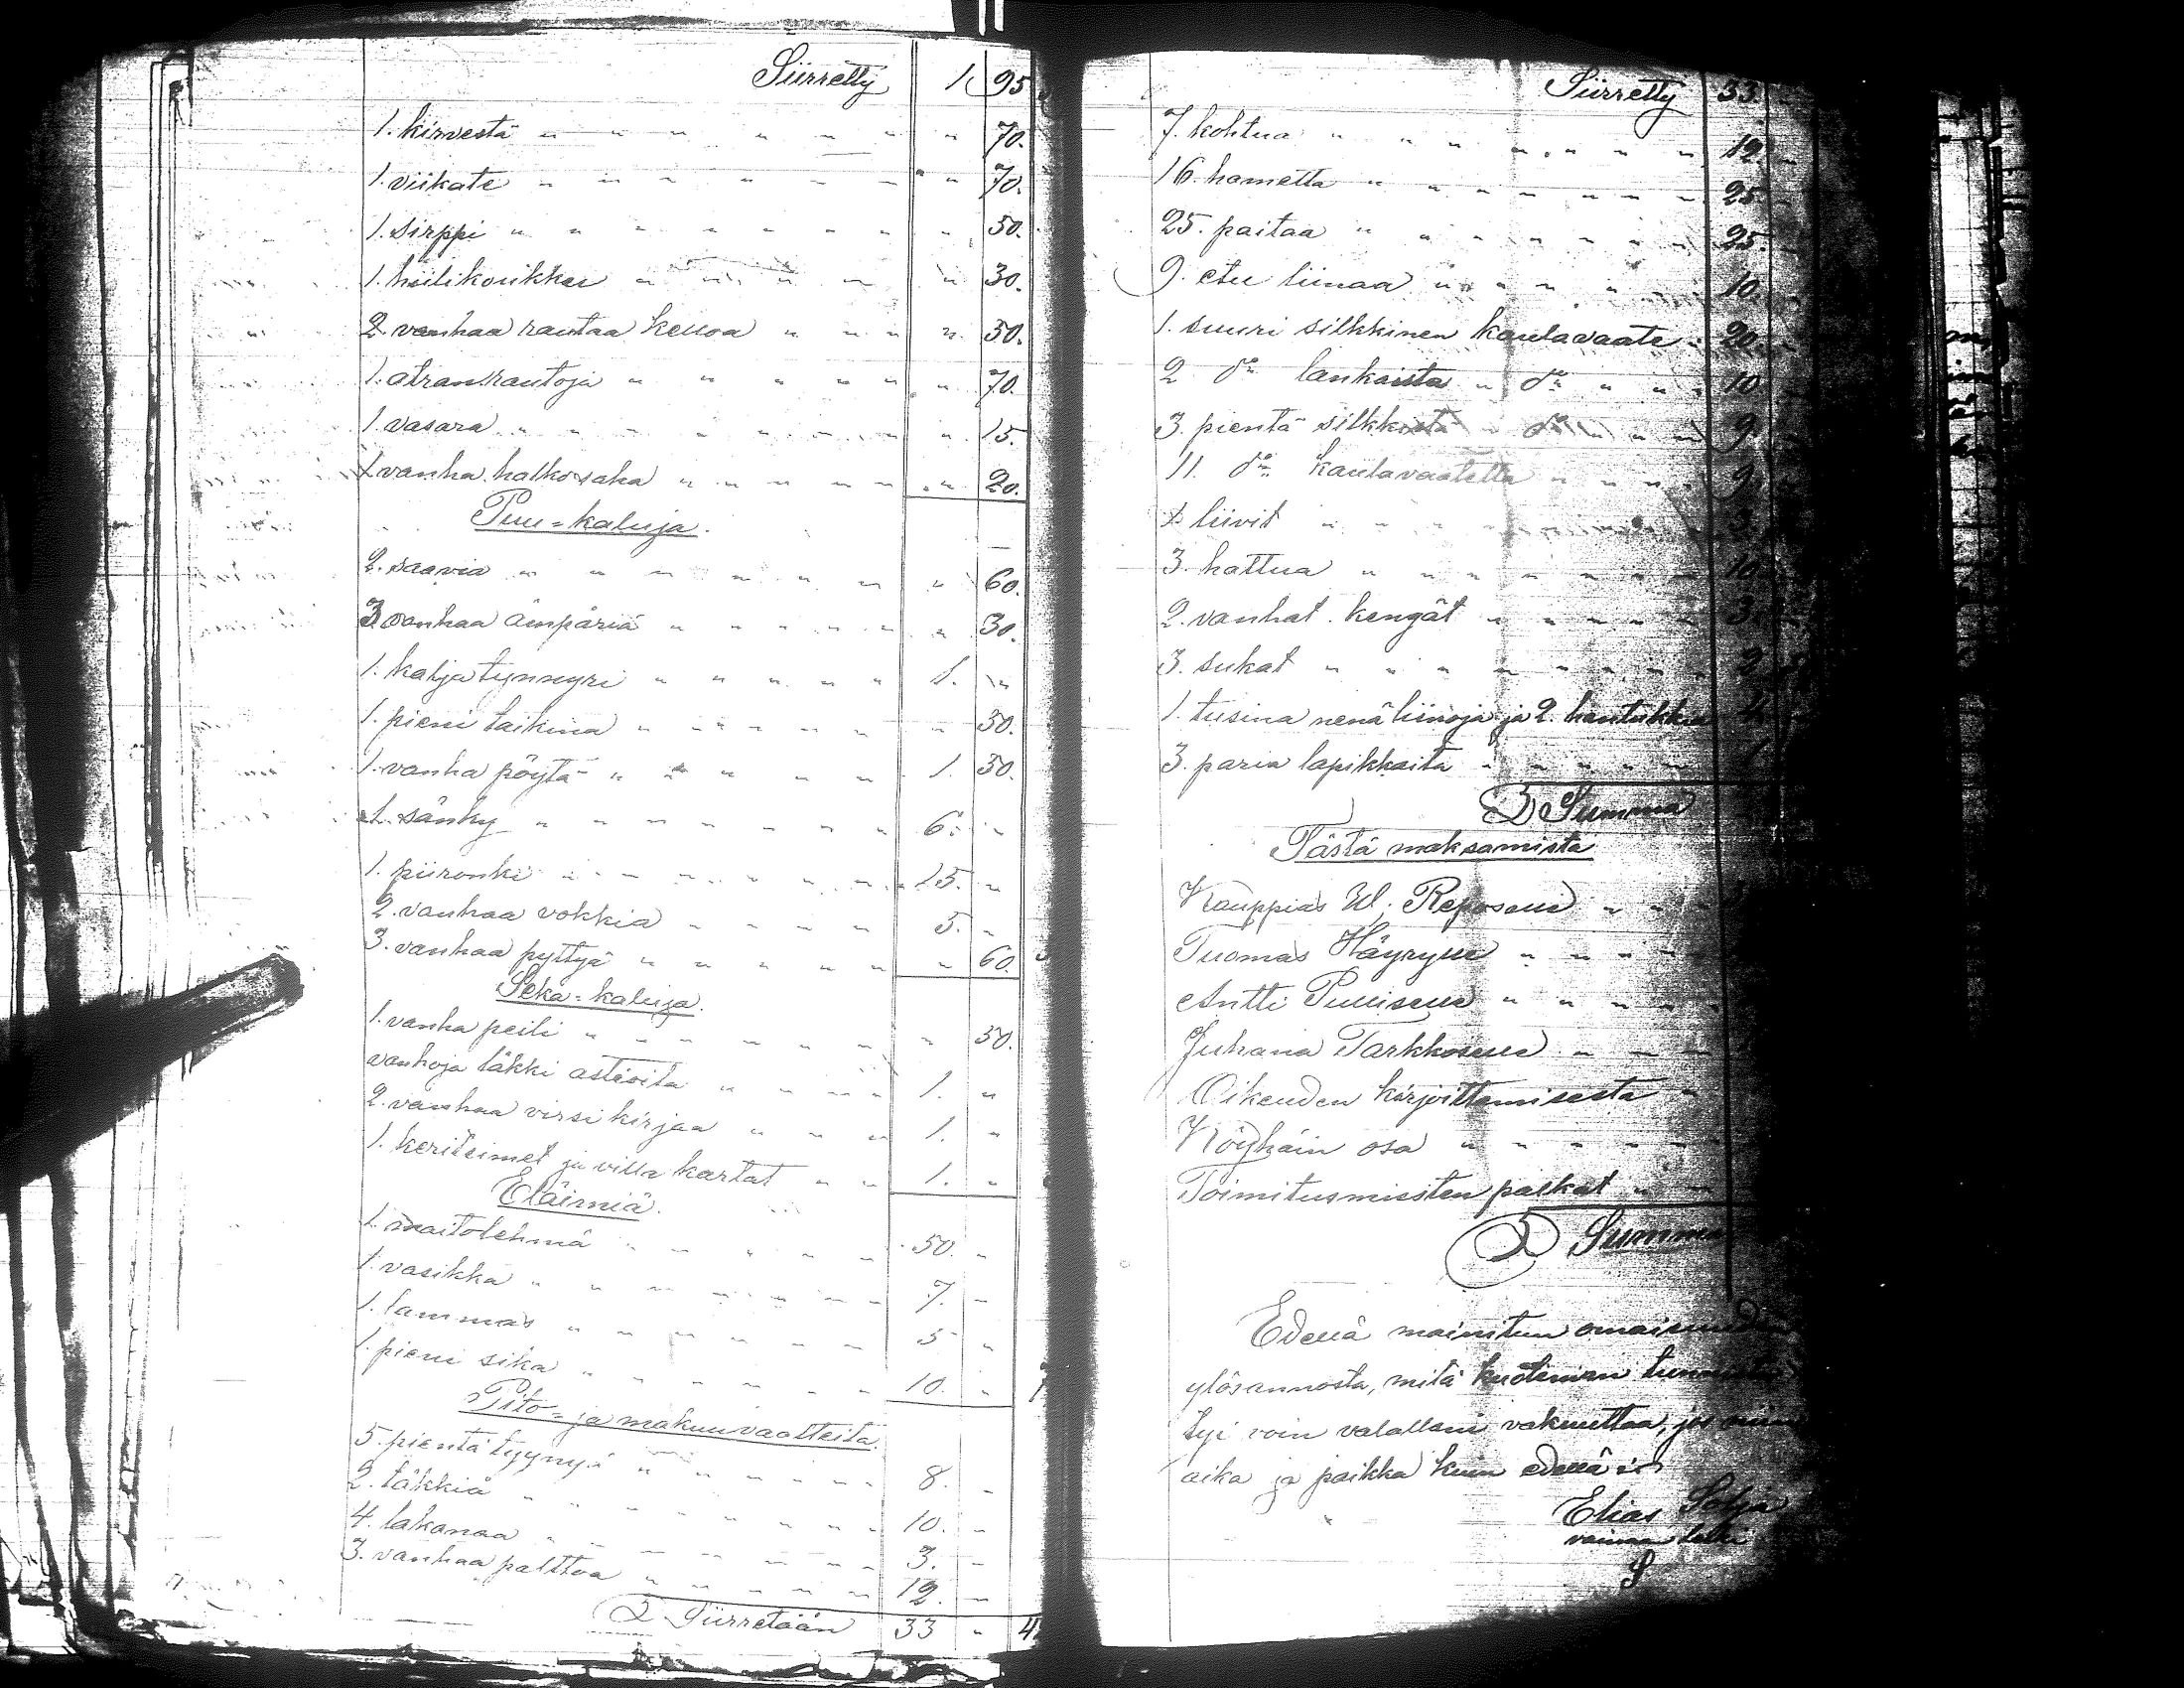 Siirretty 1 95
1. kirvestä " " " " " " " 70.
1. viikate " " " " " " " " 70.
1. sirppi " " " " " " " " 50.
1. hiilikoukku " " " " " 30.
2. vanhaa rautaa kelloa " " " " 50.
1. atranrautoja " " " " " " 70.
1. vasara " " " " " " " " 15.
1. vanha halkosaha " " " " " " 20.
Puu=kaluja.
2. saavia " " " " " " " 60.
3. vanhaa ämpäriä " " " " " " 30.
1. kaljatynnyri " " " " " 1. "
1. pieni taikina " " " " " " 30.
1. vanha pöytä " " " " " 1. 30.
1. sänky " " " " " " " 6. "
1. piironki " " " " " " " 15. "
2. vanhaa vokkia " " " " 5. "
3. vanhaa pyttyä " " " " " " 60.
Seka=kaluja.
1. vanha peili " " " " " " " 50.
vanhoja läkki astioita " " " " 1. "
2. vanhaa virsikirjaa " " " 1. "
1. keritsimet ja villa kartat " " 1. "
Eläimiä.
1. maitolehmä " " " " " 50. "
1. vasikka " " " " " " " 7. "
1. lammas " " " " " " 5 "
1. pieni sika " " " " " " 10. "
Pito= ja makuuvaatteita.
5. pientä tyynyä " " " " " " 8. "
2. täkkiä " " " " " " " " 10. "
4. lakanaa " " " " " " " 3. "
3. vanhaa palttoa " " " " " " 12. "
Siirretään 33 "
Siirretty 33
7. kohtua " " " " " " " 12
16. hametta " " " " " " " 25
25. paitaa " " " " " " " 25
9. etu liinaa " " " " " 10
1. suuri silkkinen kaulavaate " 20
2 do lankaista " do " " " 10
3. pientä silkkistä " do " " " 9
11. do kaulavaatetta " " " " 9
1. liivit " " " " " " 3
3. hattua " " " " " " " 10
2. vanhat kengät " " " " " 3
3. sukat " " " " " " " 2
1. tusina nenäliinoja ja 2. hantukkia 4
3. paria lapikkaita " " " " "
Summa
Tästä maksamista
Kauppias W. Reposelle " " "
Tuomas Häyryselle " " " "
Antti Pulliselle " " " "
Juhana Tarkkoselle " " "
Oikeuden kirjoittamisesta "
Köyhäin osa " " " " "
Toimitusmiesten palkat " "
Summa
Edellä mainitun omaisuuden
ylösannosta, mitä
voin valallani vakuuttaa, jos
aika ja paikka kuin edellä
Elias